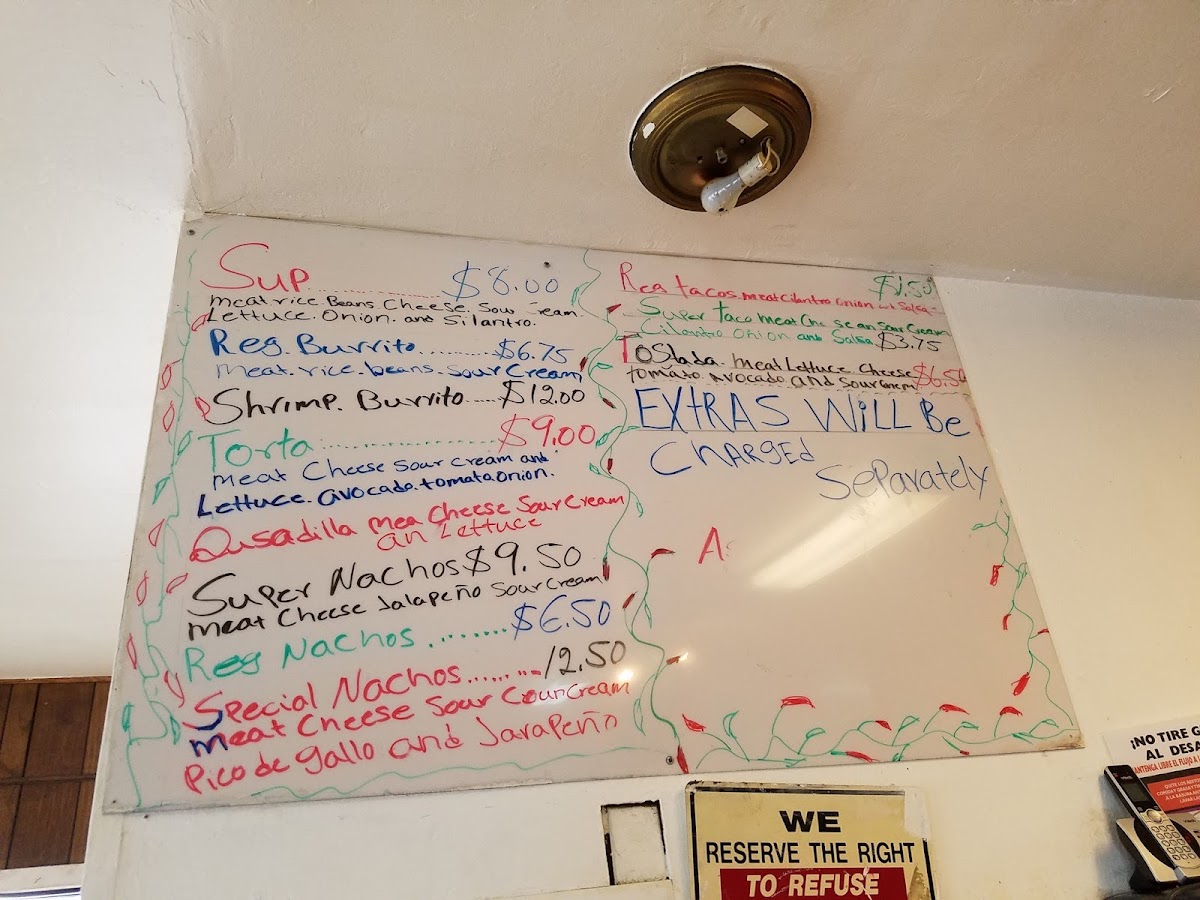 Sup $8.00
meat rice Beans. Cheese. Sour Cream.
Lettuce. Onion. and Silantro.
Reg. Burrito..........$6.75
meat. rice. beans. sour Cream
Shrimp. Burrito.....$12.00
Torta....................$9.00
meat Cheese sour cream and
Lettuce. avocado. tomata onion.
Qusadilla mea Cheese Sour Cream
an Lettuce
Super Nachos $9.50
meat Cheese Jalapeño Sour Cream
Reg Nachos.........$6.50
Special Nachos........12.50
meat Cheese Sour Cream
Pico de gallo and Jarapeño
Reg tacos. meat Cilantro Onion Salsa $1.50
Super taco meat Cheese an sour Cream
Cilantro Onion and Salsa $3.75
Toslada. meat Lettuce Cheese $6.50
tomato Avocado and sour Cream
EXtRAS WiLL Be
CHARGEd
Separately
A
WE
RESERVE THE RIGHT
TO REFUSE
¡NO TIRE
AL DESA
MANTENGA LIBRE EL FLUJO A